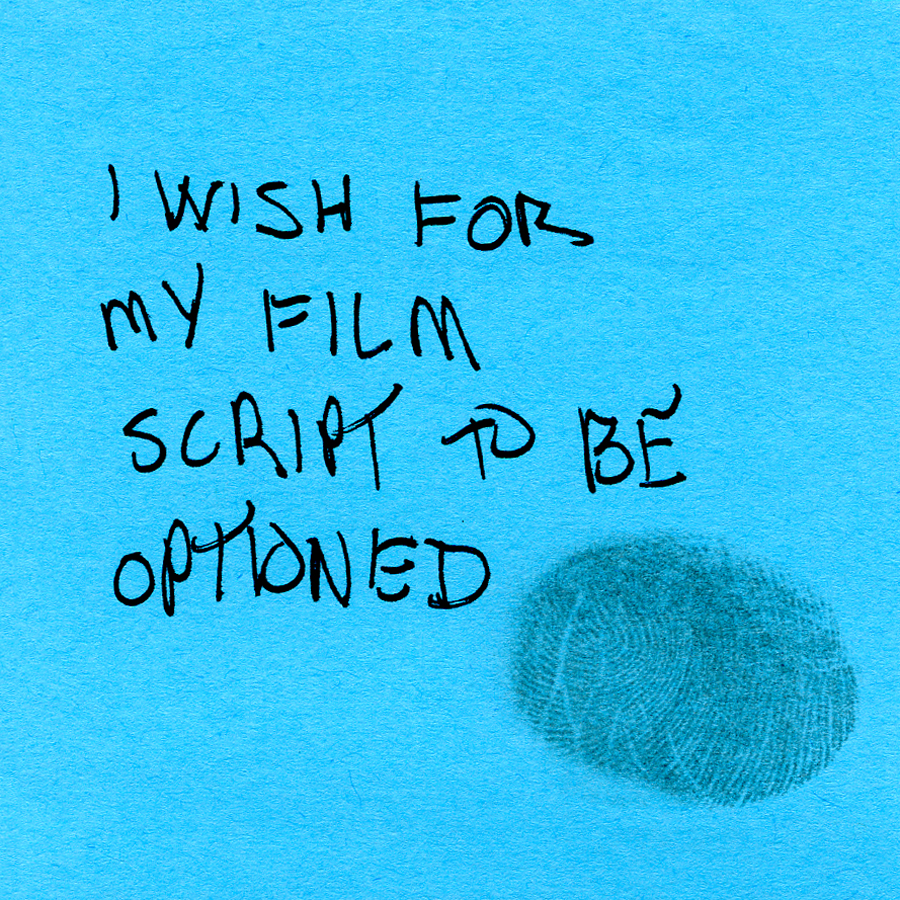 I WISH FOR
MY FILM
SCRIPT TO BE
OPTIONED